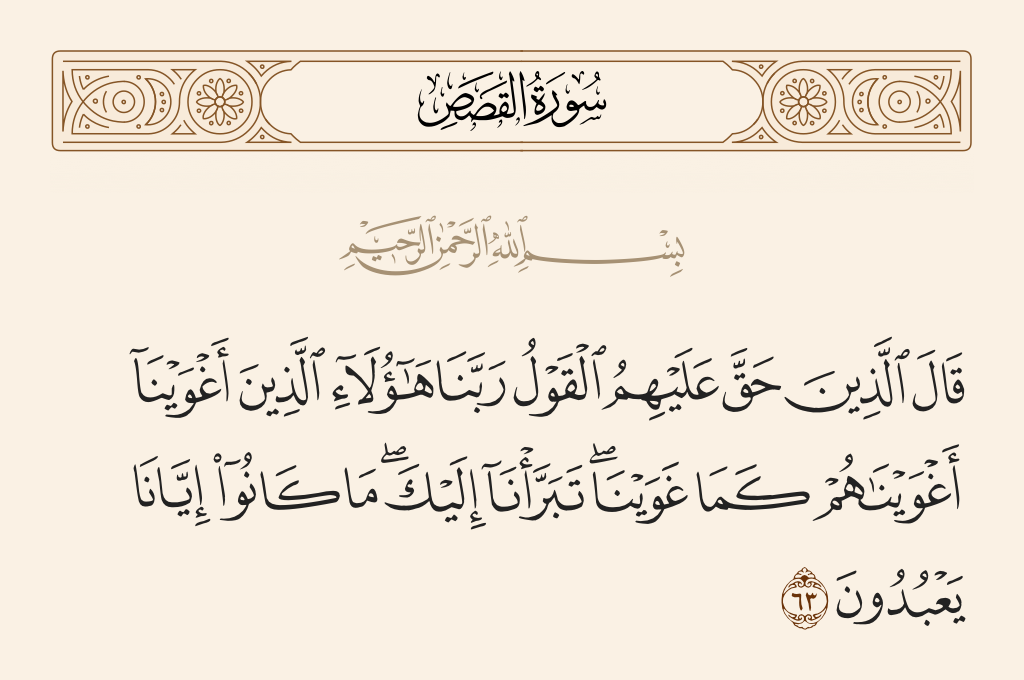 سُورَةُ القَصَصِ
بِسْمِ ٱللَّهِ ٱلرَّحْمَٰنِ ٱلرَّحِيمِ
قَالَ ٱلَّذِينَ حَقَّ عَلَيْهِمُ ٱلْقَوْلُ رَبَّنَا هَـٰٓؤُلَآءِ ٱلَّذِينَ أَغْوَيْنَآ
أَغْوَيْنَـٰهُمْ كَمَا غَوَيْنَا ۖ تَبَرَّأْنَآ إِلَيْكَ ۖ مَا كَانُوٓا۟ إِيَّانَا
يَعْبُدُونَ ٦٣